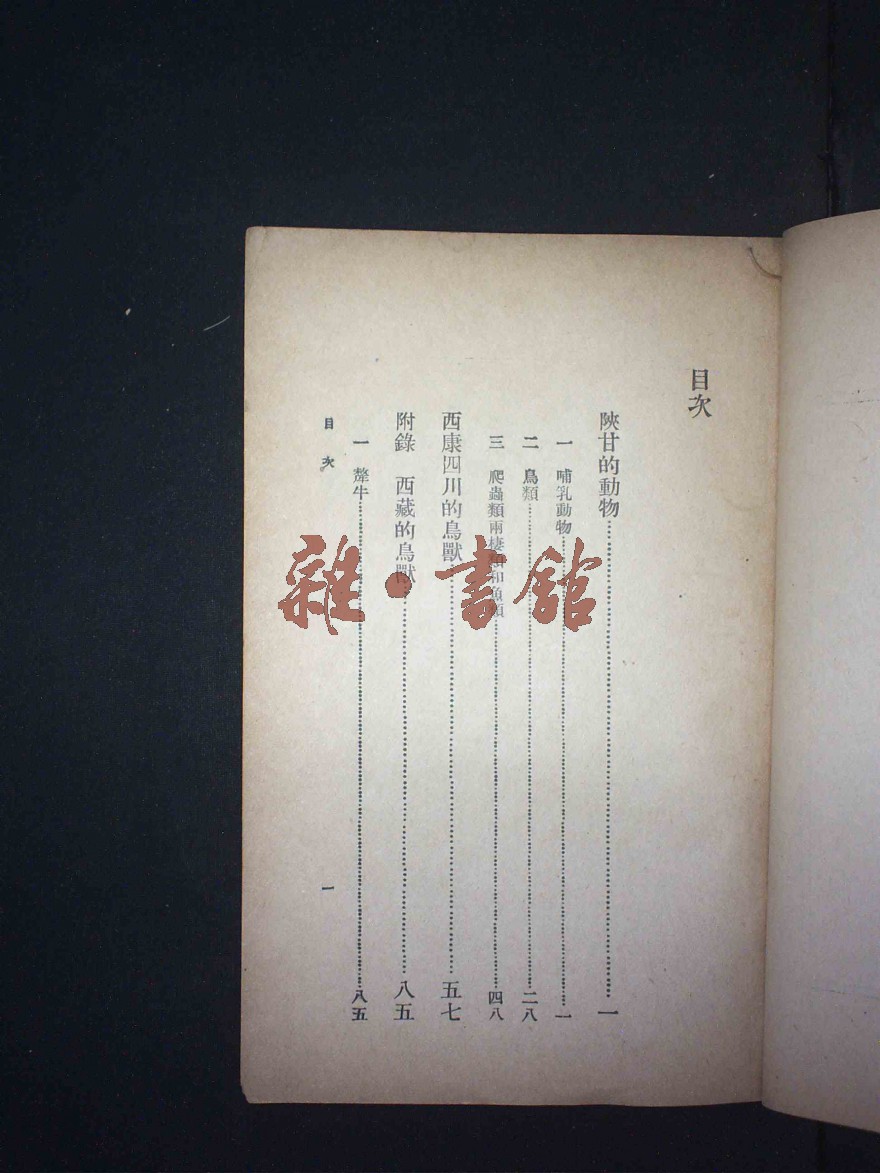 目次
陝甘的動物………一
一 哺乳動物………一
二 鳥類………二八
三 爬蟲類兩棲類和魚類………四八
西康四川的鳥獸………五七
附錄 西藏的鳥獸………八五
一 犛牛………八五
目次 一
雜·書館